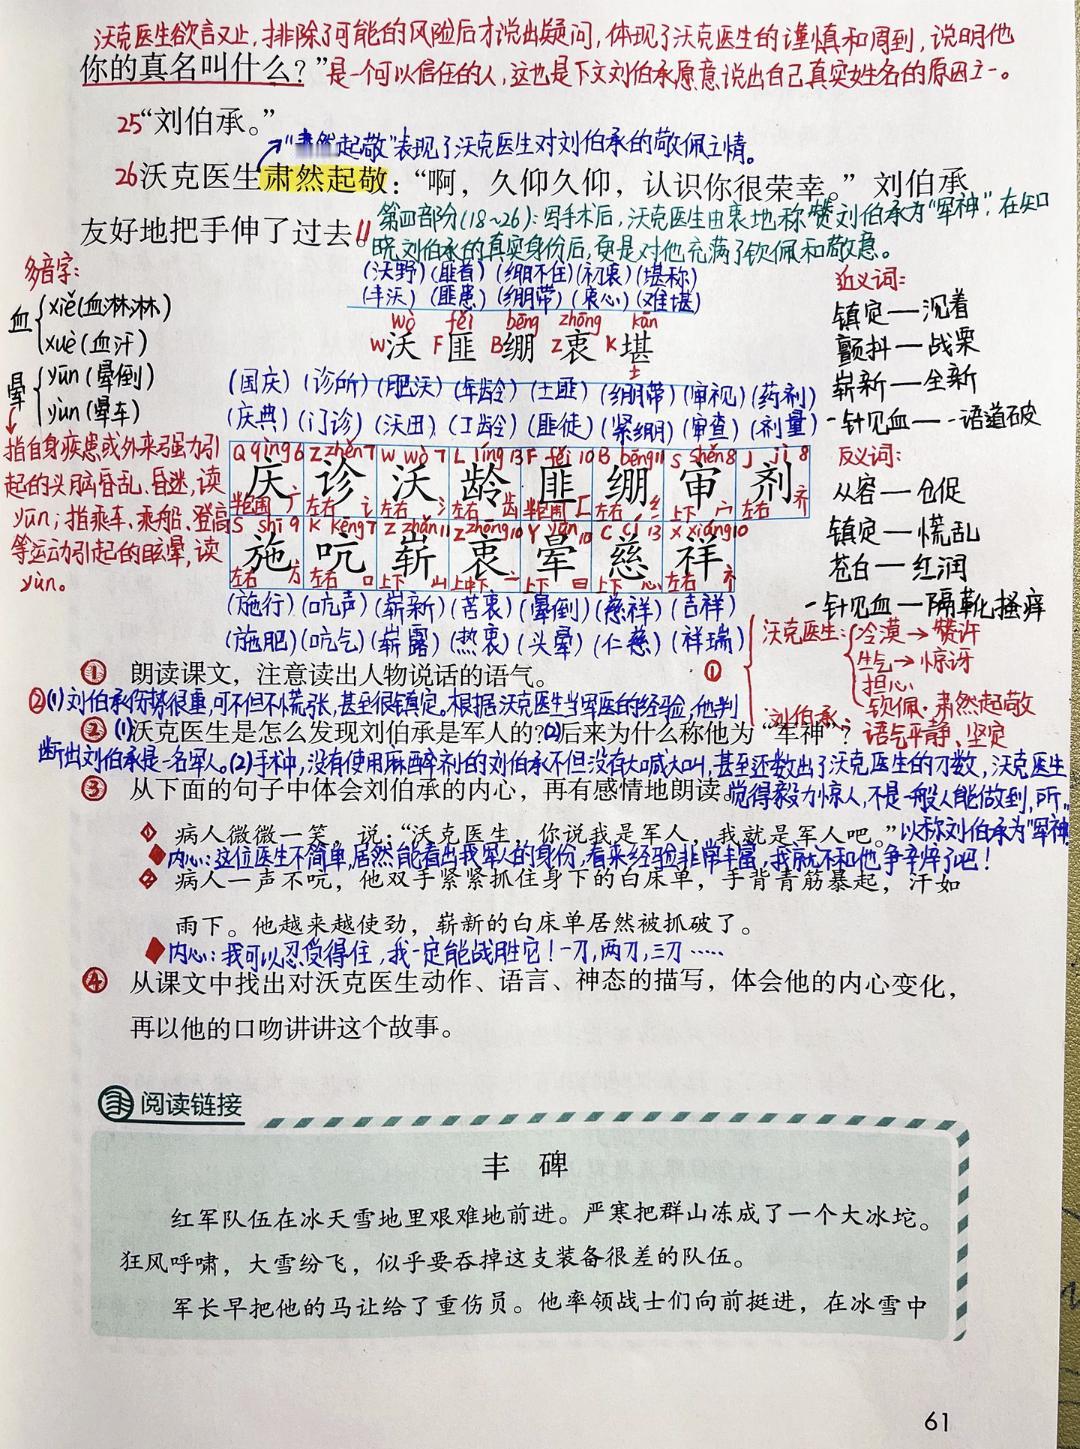 沃克医生欲言又止，排除了可能的风险后才说出疑问，体现了沃克医生的谨慎和周到，说明他
你的真名叫什么？”是一个可以信任的人，这也是下文刘伯承愿意说出自己真实姓名的原因之一。
25“刘伯承。”
“肃然起敬”表现了沃克医生对刘伯承的敬佩之情。
26沃克医生肃然起敬：“啊，久仰久仰，认识你很荣幸。”刘伯承
友好地把手伸了过去。
第四部分(18~26)：写手术后，沃克医生由衷地称赞刘伯承为“军神”，在知
晓刘伯承的真实身份后，更是对他充满了钦佩和敬意。
多音字：
血 xiě(血淋淋)
xuè(血汗)
晕 yūn(晕倒)
yùn(晕车)
指自身疾患或外来强力引
起的头脑昏乱、昏迷，读
yūn；指乘车、乘船、登高
等运动引起的眩晕，读
yùn。
(沃野)(匪首)(绷不住)(初衷)(堪称)
(丰沃)(匪患)(绷带)(衷心)(难堪)
wò fěi bēng zhōng kān
W沃 F匪 B绷 Z衷 K堪
土
(国庆)(诊所)(肥沃)(年龄)(土匪)(绷带)(审视)(药剂)
(庆典)(门诊)(沃田)(工龄)(匪徒)(紧绷)(审查)(剂量)
Q qìng 6 Z zhěn 7 W wò 7 L líng 13 F fěi 10 B bēng 11 S shěn 8 J jì 8
庆 诊 沃 龄 匪 绷 审 剂
半包围 广 左右 讠 左右 氵 左右 齿 半包围 匚 左右 纟 上下 宀 左右 齐
S shī 9 K kēng 7 Z zhǎn 11 Z zhōng 10 Y yūn 10 C cí 13 X xiáng 10
施 吭 崭 衷 晕 慈 祥
左右 方 左右 口 上下 山 上中下 亠 上下 日 上下 心 左右 礻
(施行)(吭声)(崭新)(苦衷)(晕倒)(慈祥)(吉祥)
(施肥)(吭气)(崭露)(热衷)(头晕)(仁慈)(祥瑞)
近义词：
镇定——沉着
颤抖——战栗
崭新——全新
一针见血——一语道破
反义词：
从容——仓促
镇定——慌乱
苍白——红润
一针见血——隔靴搔痒
① 朗读课文，注意读出人物说话的语气。
① 沃克医生：冷漠→赞许
生气→惊讶
担心
钦佩·肃然起敬
刘伯承：语气平静、坚定
②(1)刘伯承伤势很重，可不但不慌张，甚至很镇定。根据沃克医生当军医的经验，他判
② (1)沃克医生是怎么发现刘伯承是军人的？(2)后来为什么称他为“军神”？
断出刘伯承是一名军人。(2)手术中，没有使用麻醉剂的刘伯承不但没有大喊大叫，甚至还数出了沃克医生的刀数，沃克医生
③ 从下面的句子中体会刘伯承的内心，再有感情地朗读。觉得毅力惊人，不是一般人能做到，所
以称刘伯承为“军神”
◆ 病人微微一笑，说：“沃克医生，你说我是军人，我就是军人吧。”
◆内心：这位医生不简单，居然能看出我军人的身份，看来经验非常丰富，我就不和他争辩了吧！
◆ 病人一声不吭，他双手紧紧抓住身下的白床单，手背青筋暴起，汗如
雨下。他越来越使劲，崭新的白床单居然被抓破了。
◆内心：我可以忍受得住，我一定能战胜它！一刀，两刀，三刀……
④ 从课文中找出对沃克医生动作、语言、神态的描写，体会他的内心变化，
再以他的口吻讲讲这个故事。
阅读链接
丰 碑
红军队伍在冰天雪地里艰难地前进。严寒把群山冻成了一个大冰坨。
狂风呼啸，大雪纷飞，似乎要吞掉这支装备很差的队伍。
军长早把他的马让给了重伤员。他率领战士们向前挺进，在冰雪中
61